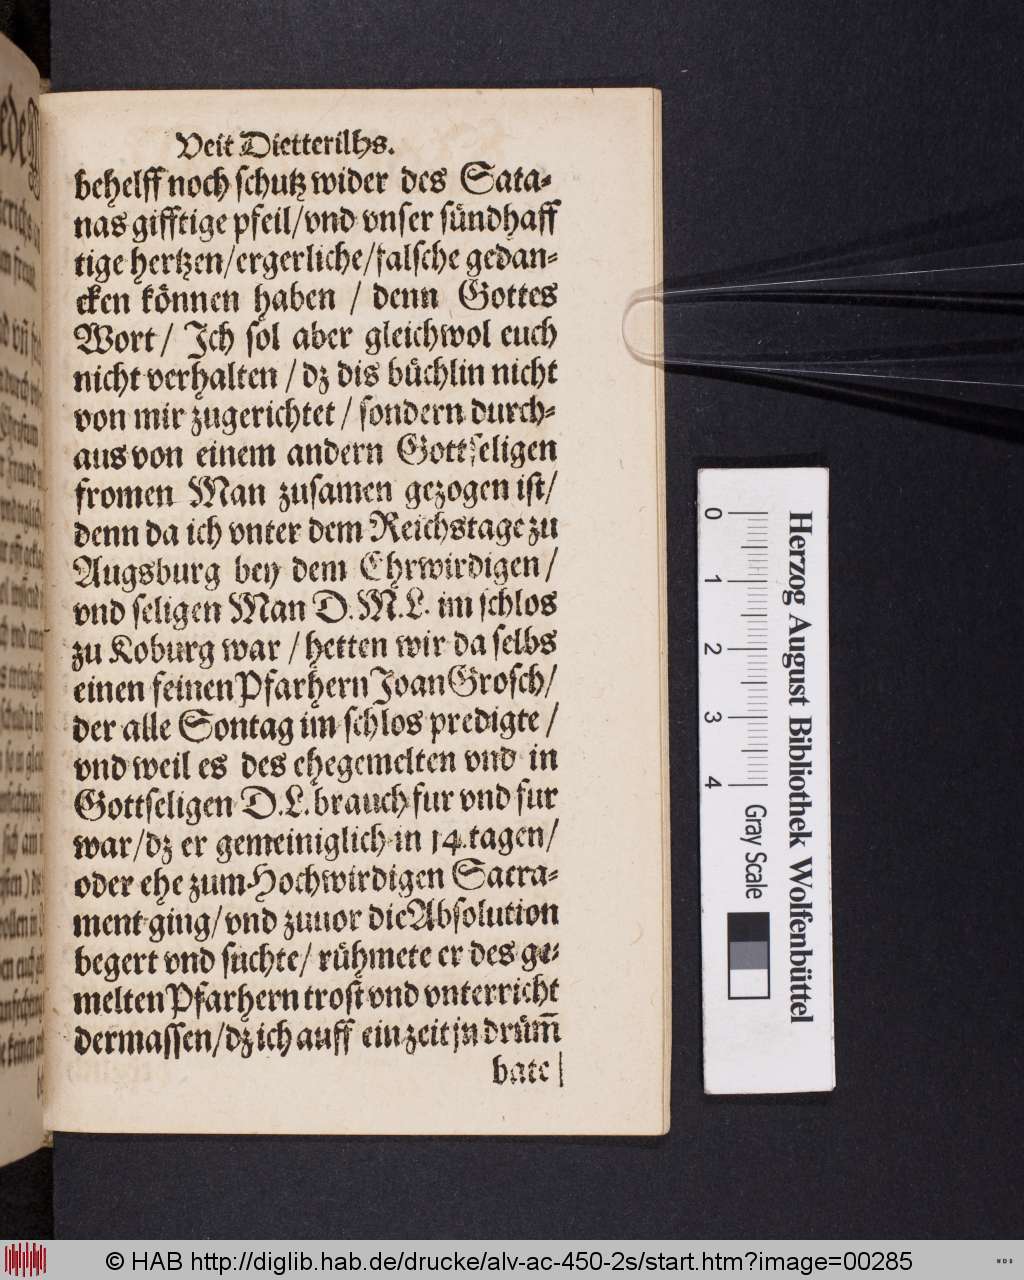 Veit Dietterilhs.
behelff noch schutz wider des Sata-
nas gifftige pfeil/vnd vnser sündhaff
tige hertzen/ergerliche/falsche gedan-
cken können haben / denn Gottes
Wort/ Ich sol aber gleichwol euch
nicht verhalten / dz dis büchlin nicht
von mir zugerichtet / sondern durch-
aus von einem andern Gottseligen
fromen Man zusamen gezogen ist/
denn da ich vnter dem Reichstage zu
Augsburg bey dem Ehrwirdigen/
vnd seligen Man D. M. L. im schlos
zu Koburg war / hetten wir da selbs
einen feinen Pfarhern Joan Grosch/
der alle Sontag im schlos predigte /
vnd weil es des ehegemelten vnd in
Gottseligen D. L. brauch fur vnd fur
war/dz er gemeiniglich in 14. tagen/
oder ehe zum Hochwirdigen Sacra-
ment ging/vnd zuuor die Absolution
begert vnd suchte/ rühmete er des ge-
melten Pfarhern trost vnd vnterricht
dermassen/dz ich auff ein zeit jn drüm̄
bate
0 1 2 3 4
Gray Scale
Herzog August Bibliothek Wolfenbüttel
© HAB http://diglib.hab.de/drucke/alv-ac-450-2s/start.htm?image=00285